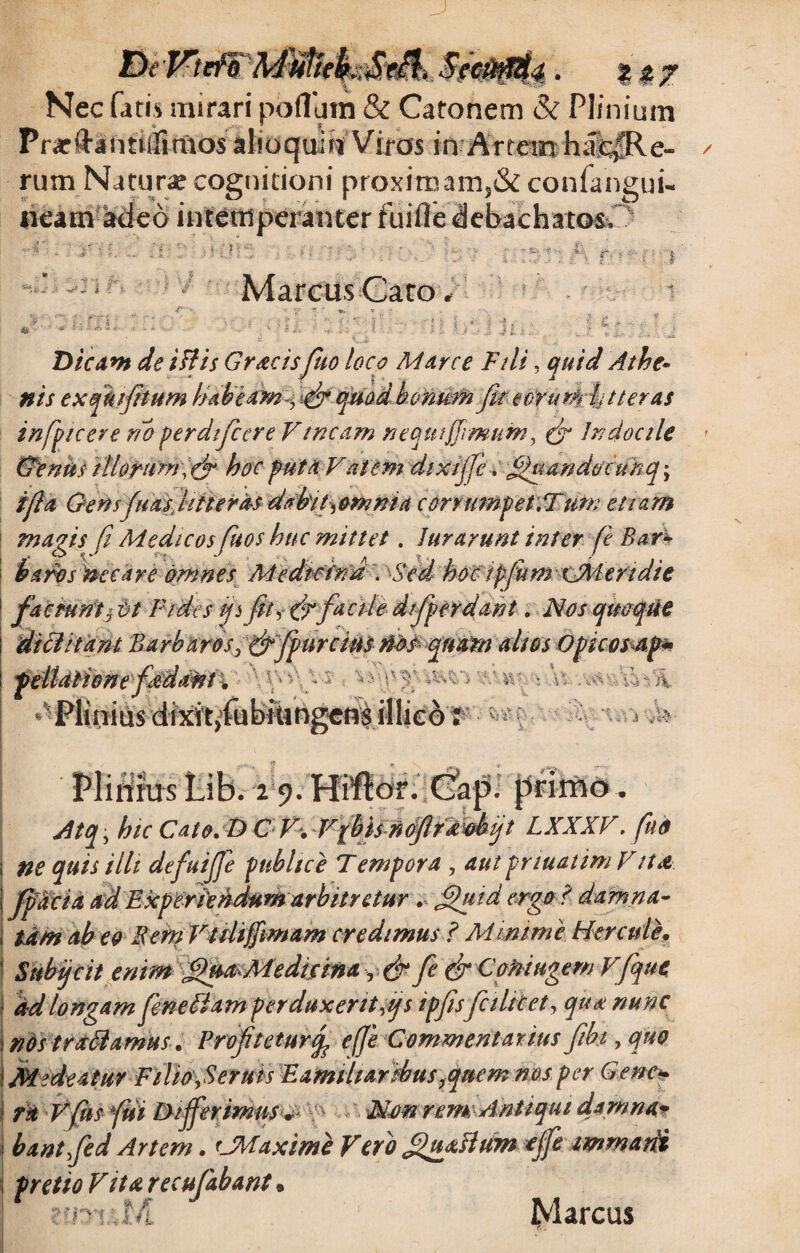 De Vitro Mutich. Sect. Secunda. 227
Nec satis mirari possum & Catonem & Plinium
Præstantissimos alioquin Viros in Artem hãc, Re-
rum Naturæ cognitioni proximam, & consangui-
neam adeò intemperanter fuisse debachatos.
Marcus Cato.
Dicam de istis Græcis suo loco Marce Fili, quid Athe-
nis exquisitum habeam, & quod bonum sit eorum litteras
inspicere nõ perdiscere Vincam nequissimum, & Indocile
Genus illorum, & hoc puta Vatem dixisse. Quandocunq;
ista Gens suas litteras dabit, omnia corrumpet. Tum etiam
magis si Medicos suos huc mittet. Iurarunt inter se Bar-
baros necare omnes Medicina. Sed hoc ipsum Meridie
faciunt, vt Fides ijs sit, & facile disperdant. Nos quoque
dictitant Barbaros, & spurcius nos quam alios Opicos ap-
pellatione fædant.
Plinius dixit, subiungens illicò:
Plinius Lib. 29. Histor. Cap. primo.
Atq; hic Cato. D C V. Vrbis nostræ obijt LXXXV. suo
ne quis illi defuisse publicè Tempora, aut priuatim Vitæ
spacia ad Experiendum arbitretur. Quid ergo? damna-
tam ab eo Rem Vtilissimam credimus? Minimè Herculè.
Subijcit enim Qua Medicina, & se & Coniugem Vsque
ad longam senectam perduxerit, ijs ipsis scilicet, quæ nunc
nos tractamus. Profiteturq; esse Commentarius sibi, quo
Medeatur Filio, Seruis Familiaribus, quem nos per Gene-
ra Vsus sui Differimus. Non rem Antiqui damna-
bant, sed Artem. Maximè Verò Quæstum esse immani
pretio Vitæ recusabant.
Marcus